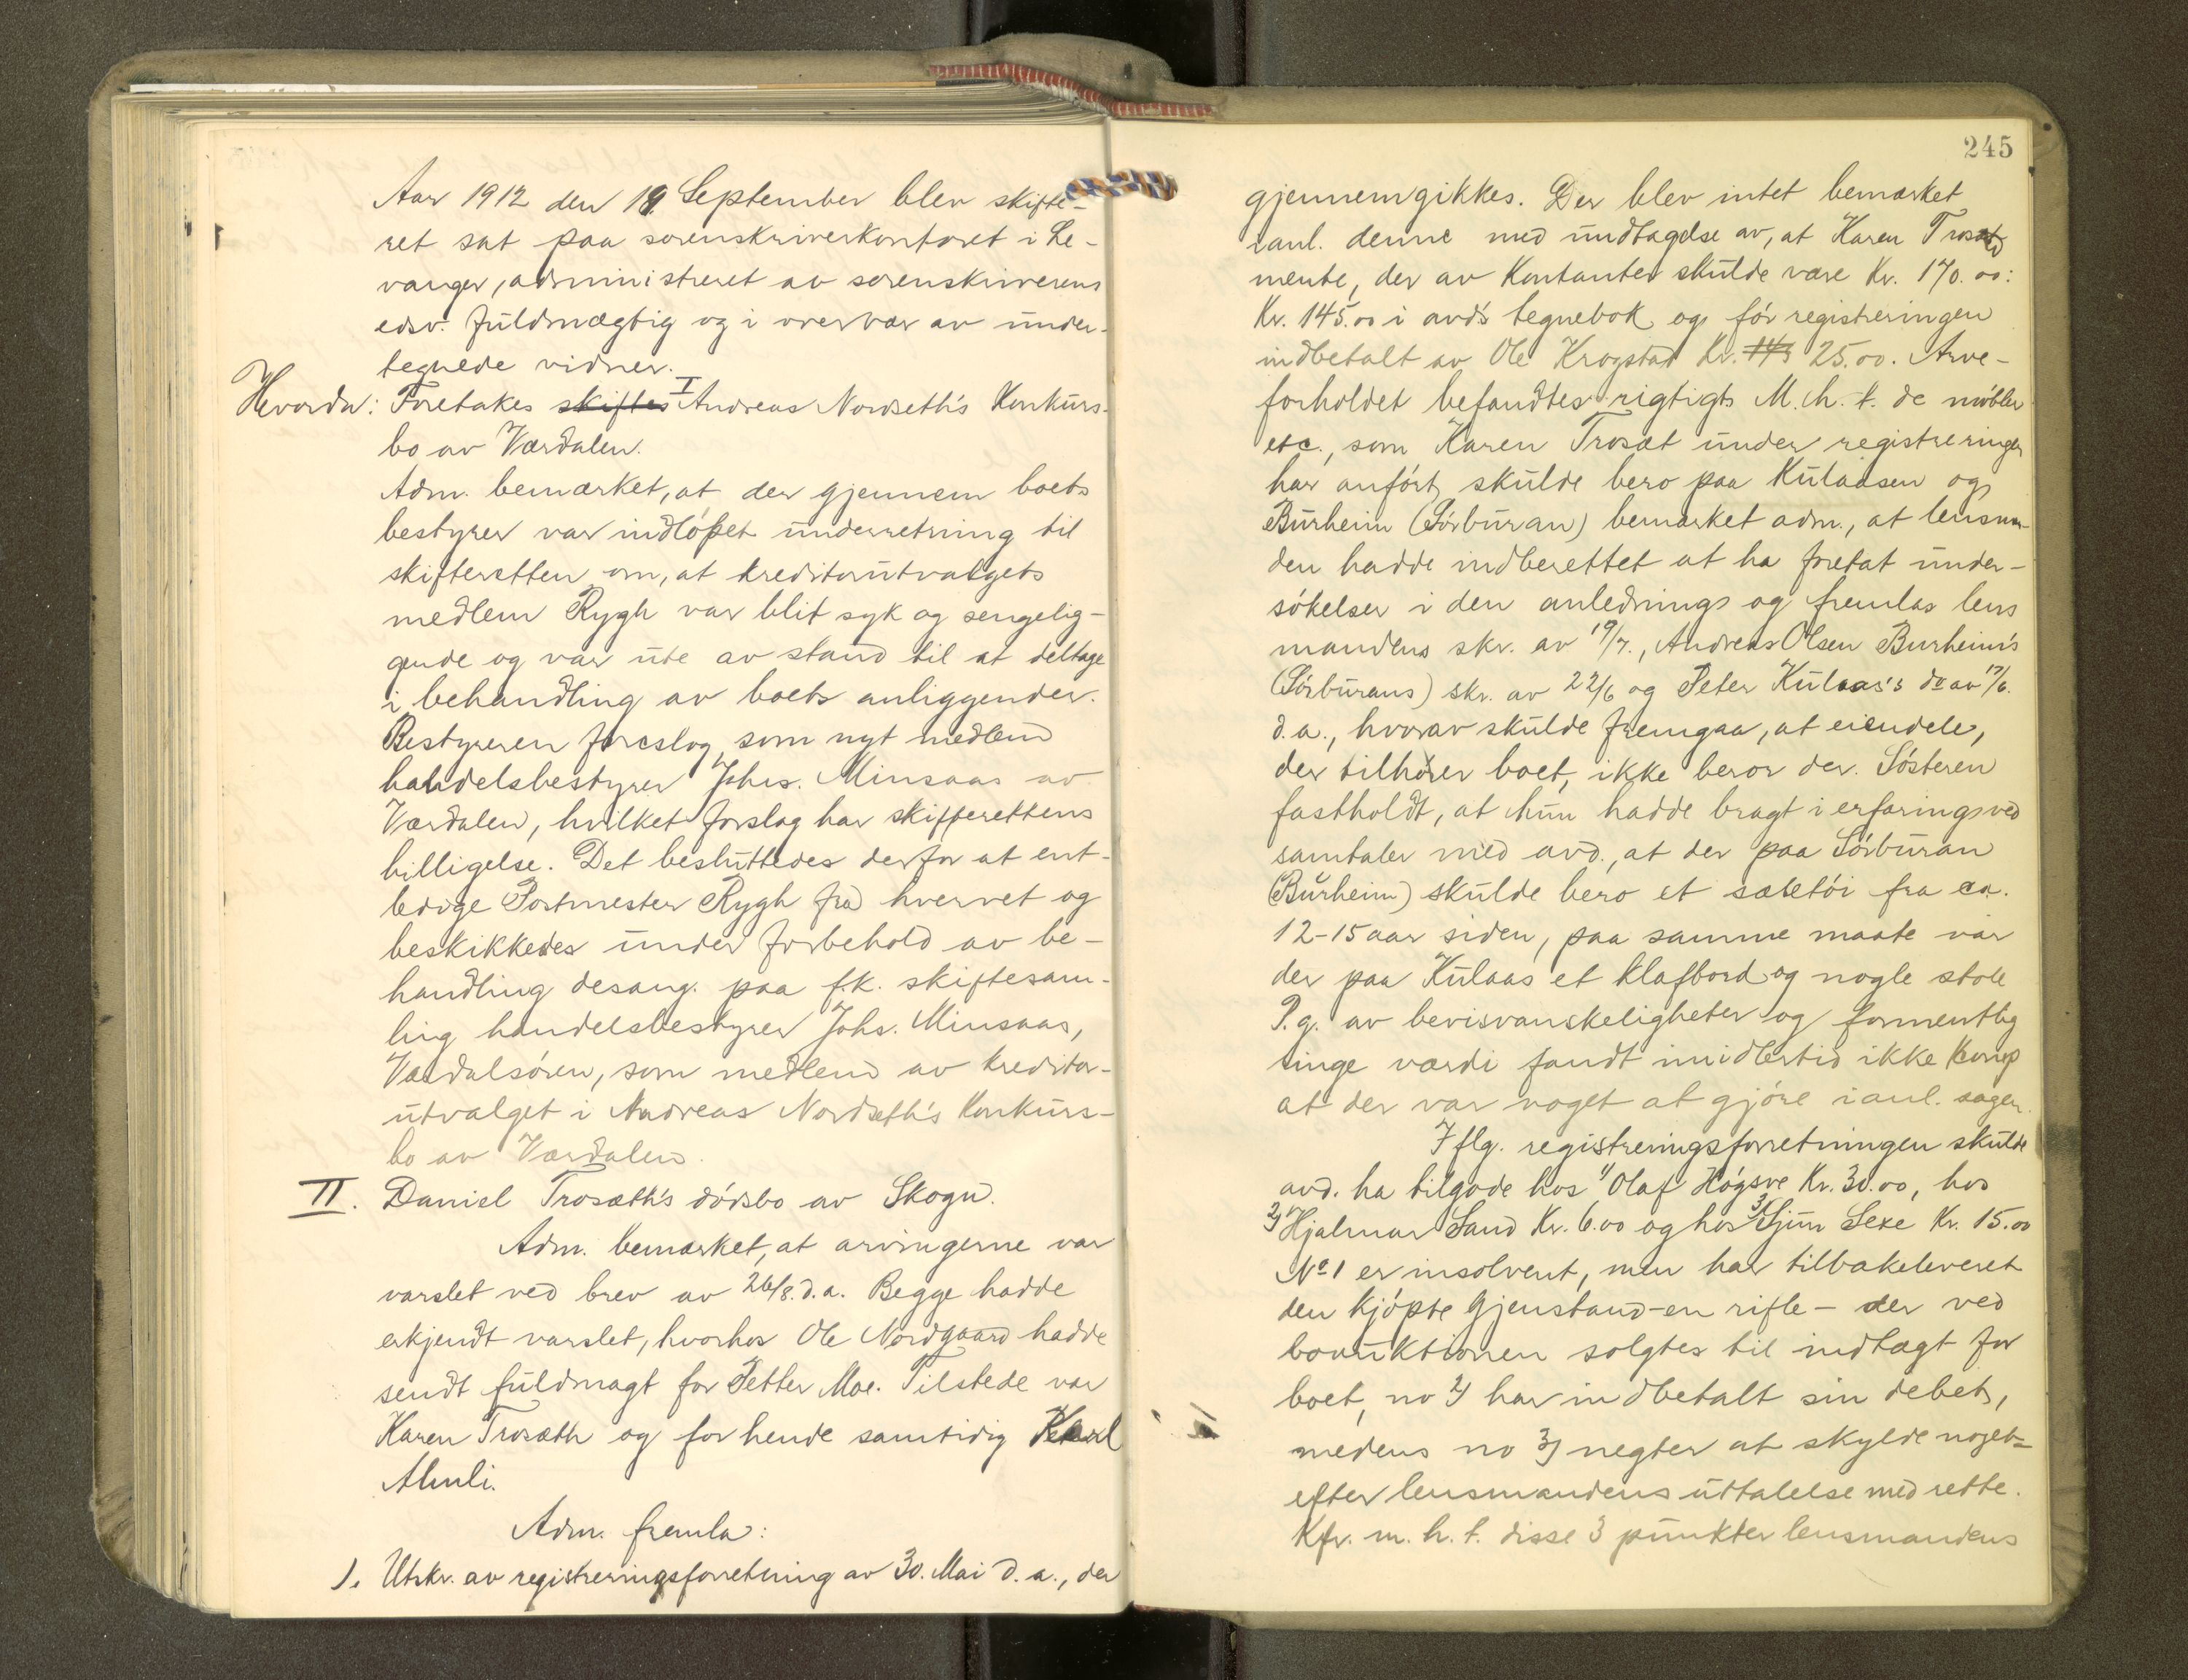 Aar 1912 den 19. September blev skifte-
ret sat paa sorenskriverkontoret i Le-
vanger, administreret av sorenskriverens
edsv. fuldmægtig og i overvær av under-
tegnede vidner.
Hvorda: Foretakes skiftes I Andreas Nordseth's Konkurs-
bo av Værdalen.
Adm. bemærket, at der gjennem boets
bestyrer var indløpet underretning til
skifteretten om, at kreditorutvalgets
medlem Rygh var blit syk og sengelig-
gende og var ute av stand til at deltage
i behandling av boets anliggender.
Bestyreren foreslog som nyt medlem
handelsbestyrer Johs. Minsaas av
Værdalen, hvilket forslag har skifterettens
billigelse. Det besluttedes derfor at ent-
ledige Postmester Rygh fra hvervet og
beskikkedes under forbehold av be-
handling desang. paa f.k. skiftesam-
ling handelsbestyrer Johs. Minsaas,
Værdalsøren, som medlem av kreditor-
utvalget i Andreas Nordseth's Konkurs-
bo av Værdalen.
II. Daniel Trosæth's dødsbo av Skogn.
Adm. bemærket, at arvingerne var
varslet ved brev av 26/8. d.a. Begge hadde
erkjendt varslet, hvorhos Ole Nordgaard hadde
sendt fuldmagt for Petter Moe. Tilstede var
Karen Trosæth og for hende samtidig Karl
Almli.
Adm. fremla:
1. Utskr. av registreringsforretning av 30. Mai d.a., der
245
gjennemgikkes. Der blev intet bemærket
ianl. denne med undtagelse av, at Karen Trosæt
mente, der av Kontanter skulde være Kr. 170.00:
Kr. 145.00 i avd's tegnebok og før registreringen
indbetalt av Ole Krogstad Kr. 145 25.00. Arve-
forholdet befandtes rigtigt. M.h.t. de møbler
etc., som Karen Trosæt under registreringen
har anført, skulde bero paa Kulaasen og
Burheim (Sørburan) bemærket adm., at lensm-
den hadde indberettet at ha foretat under-
søkelser i den anledning og fremlas lens
mandens skr. av 19/7., Andreas Olsen Burheim's
(Sørburans) skr. av 22/6 og Peter Kulaas's do av 17/6.
d.a., hvorav skulde fremgaa, at eiendele,
der tilhører boet, ikke beror der. Søsteren
fastholdt, at hun hadde bragt i erfaring ved
samtaler med avd., at der paa Sørburan
(Burheim) skulde bero et sæletøi fra ca.
12-15 aar siden, paa samme maate var
der paa Kulaas et klafbord og nogle stole
P.g. av bevisvanskeligheter og formentlig
ringe værdi fandt imidlertid ikke
at der var noget at gjøre ianl. sagen.
Iflg. registreringsforretningen skulde
avd. ha tilgode hos 1) Olaf Høgsve Kr. 30.00, hos
2) Hjalmar Sand Kr. 6.00 og hos 3) Sexe Kr. 15.00
No 1 er insolvent, men har tilbakeleveret
den kjøpte gjenstand - en rifle - der ved
boauktionen solgtes til indtægt for
boet, no 2) har indbetalt sin debet,
medens no 3) negter at skylde noget -
efter lensmandens uttalelse med rette.
Kfr. m.h.t. disse 3 punkter lensmandens